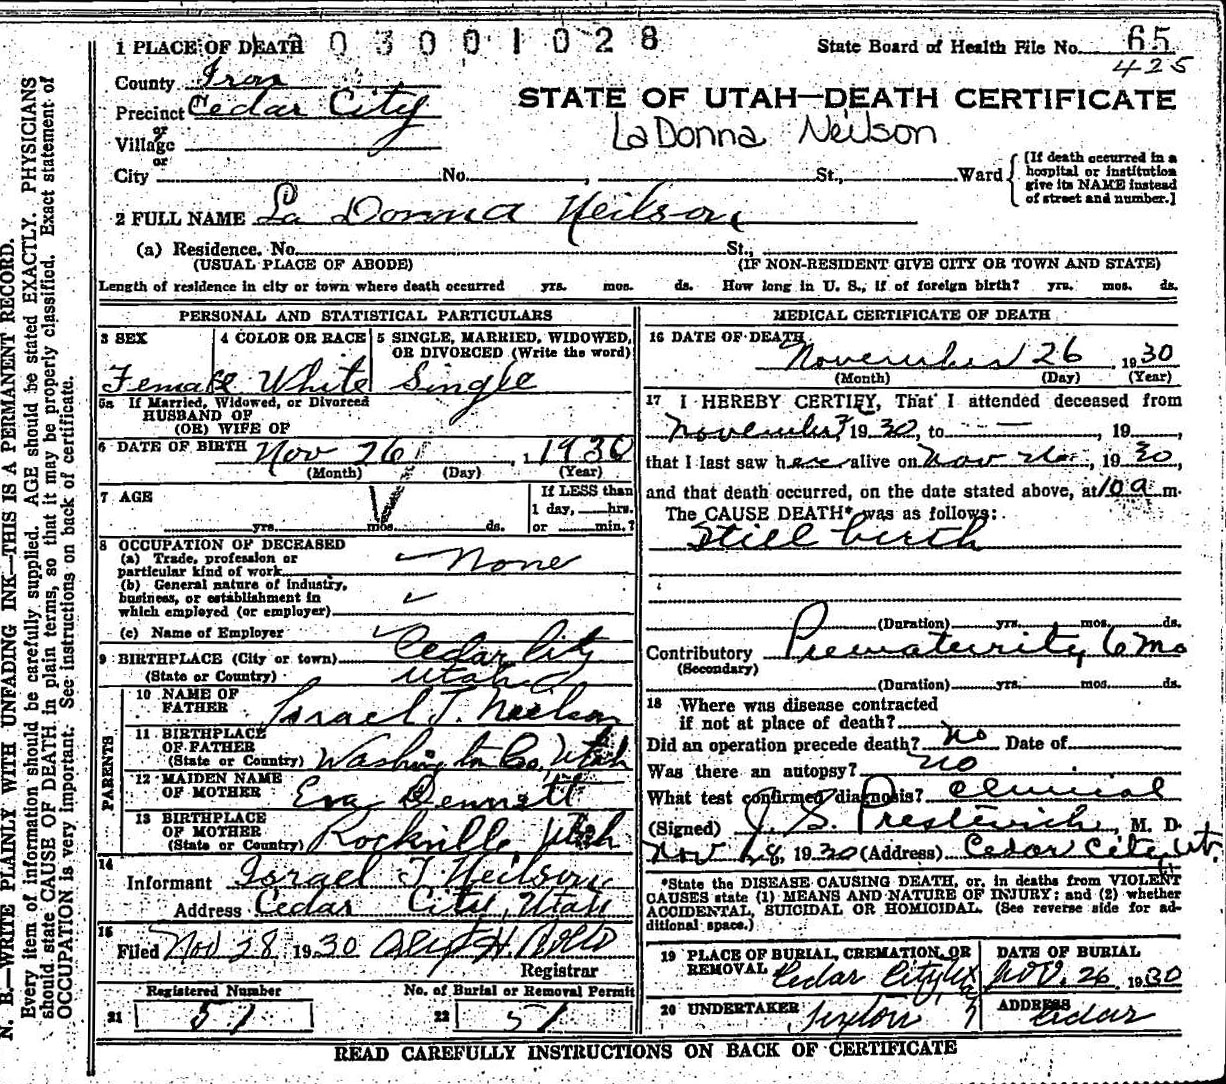 1 PLACE OF DEATH 003001028 State Board of Health File No. 65
425
County Iron
Precinct Cedar City
STATE OF UTAH—DEATH CERTIFICATE
LaDonna Neilson
or
Village
or
City No. , St., Ward
[If death occurred in a
hospital or institution
give its NAME instead
of street and number.]
2 FULL NAME La Donna Neilson
(a) Residence. No. St.,
(USUAL PLACE OF ABODE) (IF NON-RESIDENT GIVE CITY OR TOWN AND STATE)
Length of residence in city or town where death occurred yrs. mos. ds. How long in U. S., if of foreign birth? yrs. mos. ds.
PERSONAL AND STATISTICAL PARTICULARS
3 SEX 4 COLOR OR RACE 5 SINGLE, MARRIED, WIDOWED,
OR DIVORCED (Write the word)
Female White Single
5a If Married, Widowed, or Divorced
HUSBAND OF
(OR) WIFE OF
6 DATE OF BIRTH Nov 26, 1930
(Month) (Day) (Year)
7 AGE If LESS than
1 day, hrs.
yrs. mos. ds. or min.?
8 OCCUPATION OF DECEASED
(a) Trade, profession or
particular kind of work None
(b) General nature of industry,
business, or establishment in
which employed (or employer)
(c) Name of Employer
9 BIRTHPLACE (City or town) Cedar City
(State or Country) Utah
PARENTS
10 NAME OF
FATHER Israel T. Neilson
11 BIRTHPLACE
OF FATHER
(State or Country) Washington Co, Utah
12 MAIDEN NAME
OF MOTHER Eva Dennett
13 BIRTHPLACE
OF MOTHER
(State or Country) Rockville Utah
14
Informant Israel T Neilson
Address Cedar City, Utah
15
Filed Nov 28 1930
Registrar
Registered Number No. of Burial or Removal Permit
21 51 22 51
MEDICAL CERTIFICATE OF DEATH
16 DATE OF DEATH
November 26, 1930
(Month) (Day) (Year)
17 I HEREBY CERTIFY, That I attended deceased from
November 1930, to — , 19 ,
that I last saw her alive on Nov 26, 1930,
and that death occurred, on the date stated above, at 10 a m.
The CAUSE DEATH* was as follows:
Still birth
(Duration) yrs. mos. ds.
Contributory Prematurity 6 Mo
(Secondary)
(Duration) yrs. mos. ds.
18 Where was disease contracted
if not at place of death?
Did an operation precede death? No Date of
Was there an autopsy? No
What test confirmed diagnosis? Clinical
(Signed) J. S. Prestwich, M. D.
Nov 28, 1930 (Address) Cedar City, Ut.
*State the DISEASE CAUSING DEATH, or, in deaths from VIOLENT
CAUSES state (1) MEANS AND NATURE OF INJURY; and (2) whether
ACCIDENTAL, SUICIDAL OR HOMICIDAL. (See reverse side for ad-
ditional space.)
19 PLACE OF BURIAL, CREMATION, OR
REMOVAL Cedar City
DATE OF BURIAL
Nov. 26, 1930
20 UNDERTAKER Sexton
ADDRESS
Cedar
READ CAREFULLY INSTRUCTIONS ON BACK OF CERTIFICATE
N. B.—WRITE PLAINLY WITH UNFADING INK—THIS IS A PERMANENT RECORD.
Every item of information should be carefully supplied. AGE should be stated EXACTLY. PHYSICIANS
should state CAUSE OF DEATH in plain terms, so that it may be properly classified. Exact statement of
OCCUPATION is very important. See instructions on back of certificate.